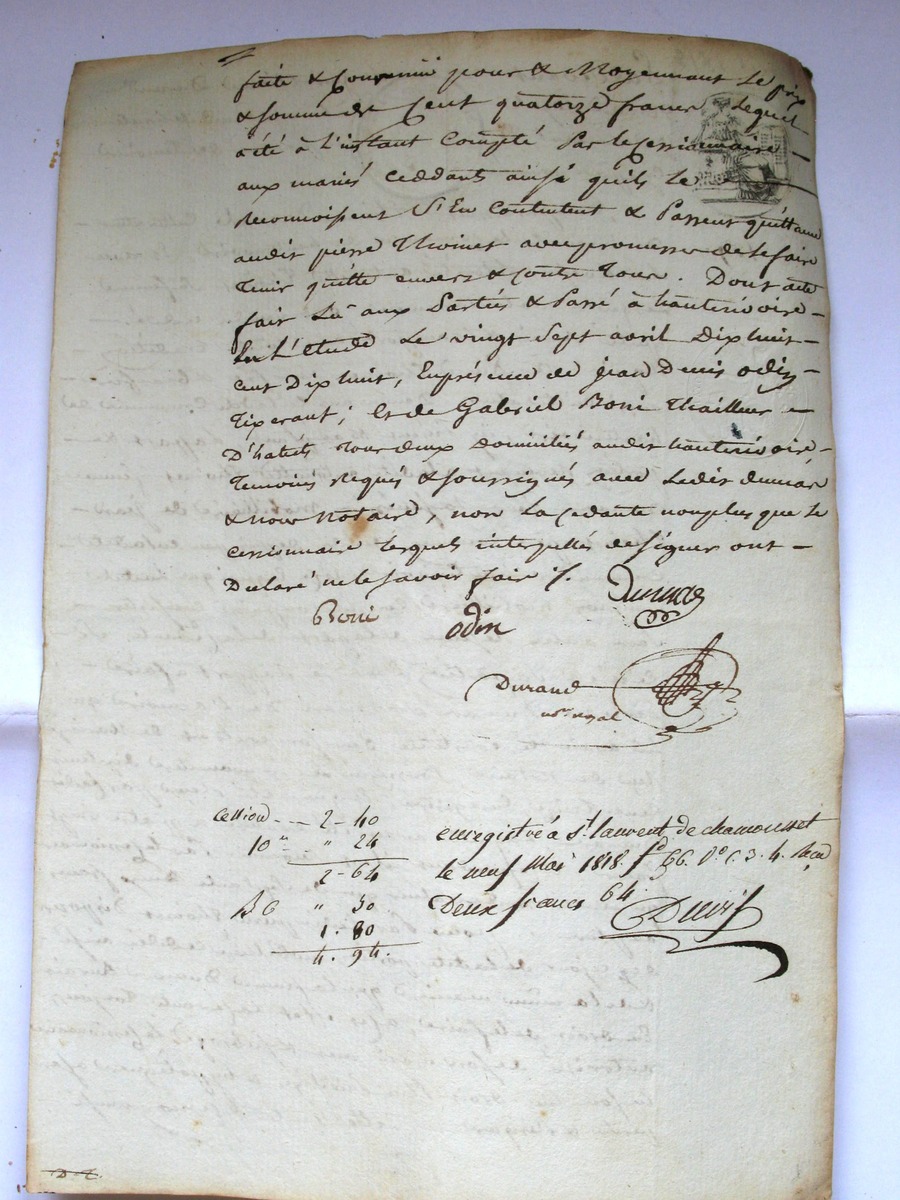 faite & Convenüe pour & Moyennant le prix
& somme de Cent quatorze francs lequel
a été à l'instant Compté Par le Cessionnaire
aux mariés Ceddants ainsi quils le
Reconnoissent S'En Contentent & Passent quittance
audit pierre Thoinet avec promesse de le faire
Tenir quitte envers & contre Tous. Dont acte
fait Lû aux Parties & Passé à hauterivoire
En L'étude Le vingt Sept avril Dix huit
cent Dix huit, En présence de jean Denis odin
Tixerant; Et de Gabriel Boni Thailleur
D'habits Tous deux Domiciliés audit hauterivoire
Temoins Requis & soussignés avec Ledit
& nous notaire, non La cedante non plus que le
cessionnaire lesquels interpellés de signer ont
Declaré ne le savoir faire /.
Boni odin
Durand
no.re royal
cession - - 2 - 40
10.e " 24
2 - 64
" 50
1 . 80
4 . 94.
enregistré à St laurent de chamousset
le neuf Mai 1818. f.o 66. V.o C. 3. 4. Reçu
Deux francs 64.